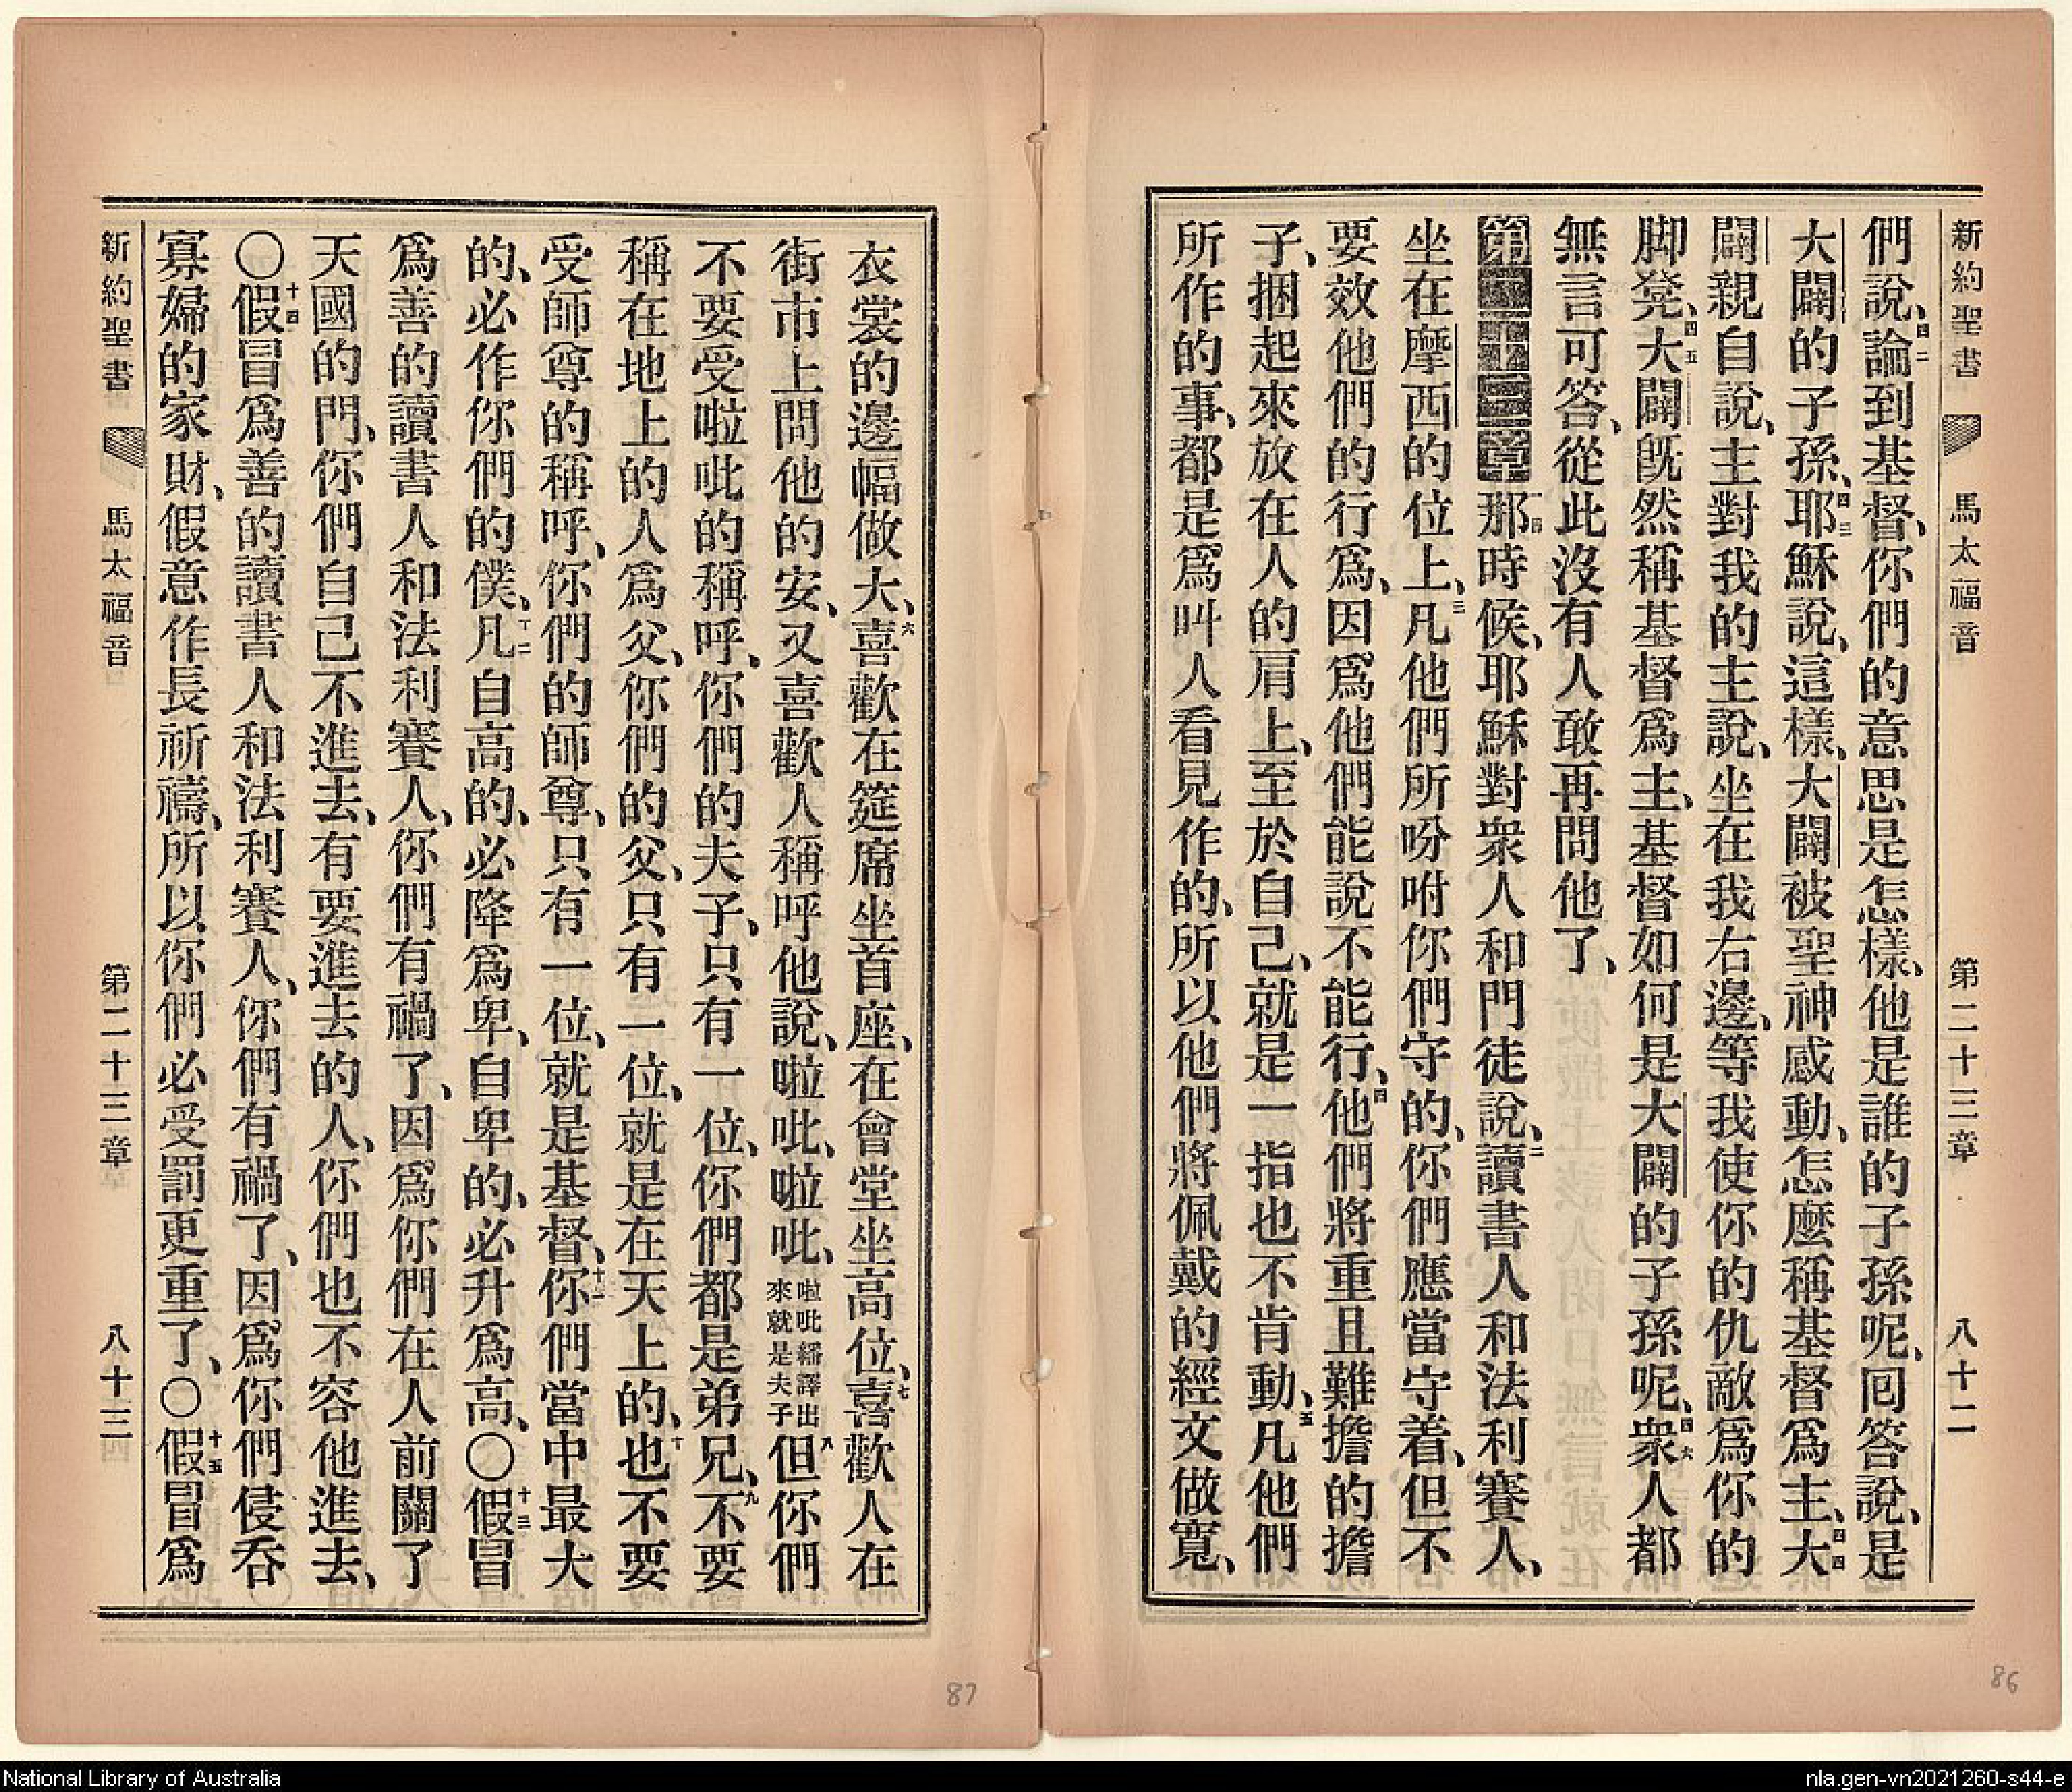 新約聖書 馬太福音 第二十三章 八十二
們說、四二論到基督、你們的意思是怎樣、他是誰的子孫呢、囘答說、是
大闢的子孫、四三耶穌說、這樣、大闢被聖神感動、怎麼稱基督爲主、四四大
闢親自說、主對我的主說、坐在我右邊、等我使你的仇敵爲你的
脚凳、四五大闢旣然稱基督爲主、基督如何是大闢的子孫呢、四六衆人都
無言可答、從此沒有人敢再問他了、
第二十三章 一那時候、耶穌對衆人和門徒說、二讀書人和法利賽人、
坐在摩西的位上、三凡他們所吩咐你們守的、你們應當守着、但不
要效他們的行爲、因爲他們能說不能行、四他們將重且難擔的擔
子、捆起來放在人的肩上、至於自己、就是一指也不肯動、五凡他們
所作的事、都是爲叫人看見作的、所以他們將佩戴的經文做寬、
衣裳的邊幅做大、六喜歡在筵席坐首座、在會堂坐高位、七喜歡人在
街市上問他的安、又喜歡人稱呼他說、啦吡、啦吡、啦吡繙譯出來就是夫子八但你們
不要受啦吡的稱呼、你們的夫子、只有一位、你們都是弟兄、九不要
稱在地上的人爲父、你們的父、只有一位、就是在天上的、十也不要
受師尊的稱呼、你們的師尊、只有一位、就是基督、十一你們當中最大
的、必作你們的僕、十二凡自高的、必降爲卑、自卑的、必升爲高、〇十三假冒
爲善的讀書人和法利賽人、你們有禍了、因爲你們在人前關了
天國的門、你們自己不進去、有要進去的人、你們也不容他進去、
〇十四假冒爲善的讀書人和法利賽人、你們有禍了、因爲你們侵呑
寡婦的家財、假意作長祈禱、所以你們必受罰更重了、〇十五假冒爲
新約聖書 馬太福音 第二十三章 八十三
87
86
National Library of Australia
nla.gen-vn2021260-s44-e